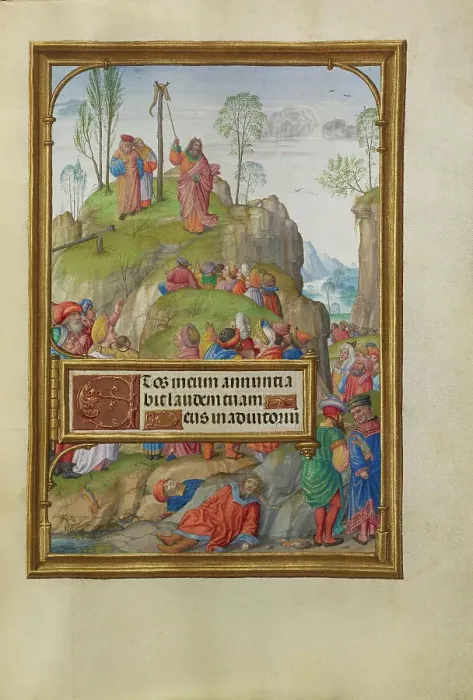 ET os meum annuntia
bit laudem tuam
Deus in adiutoriu